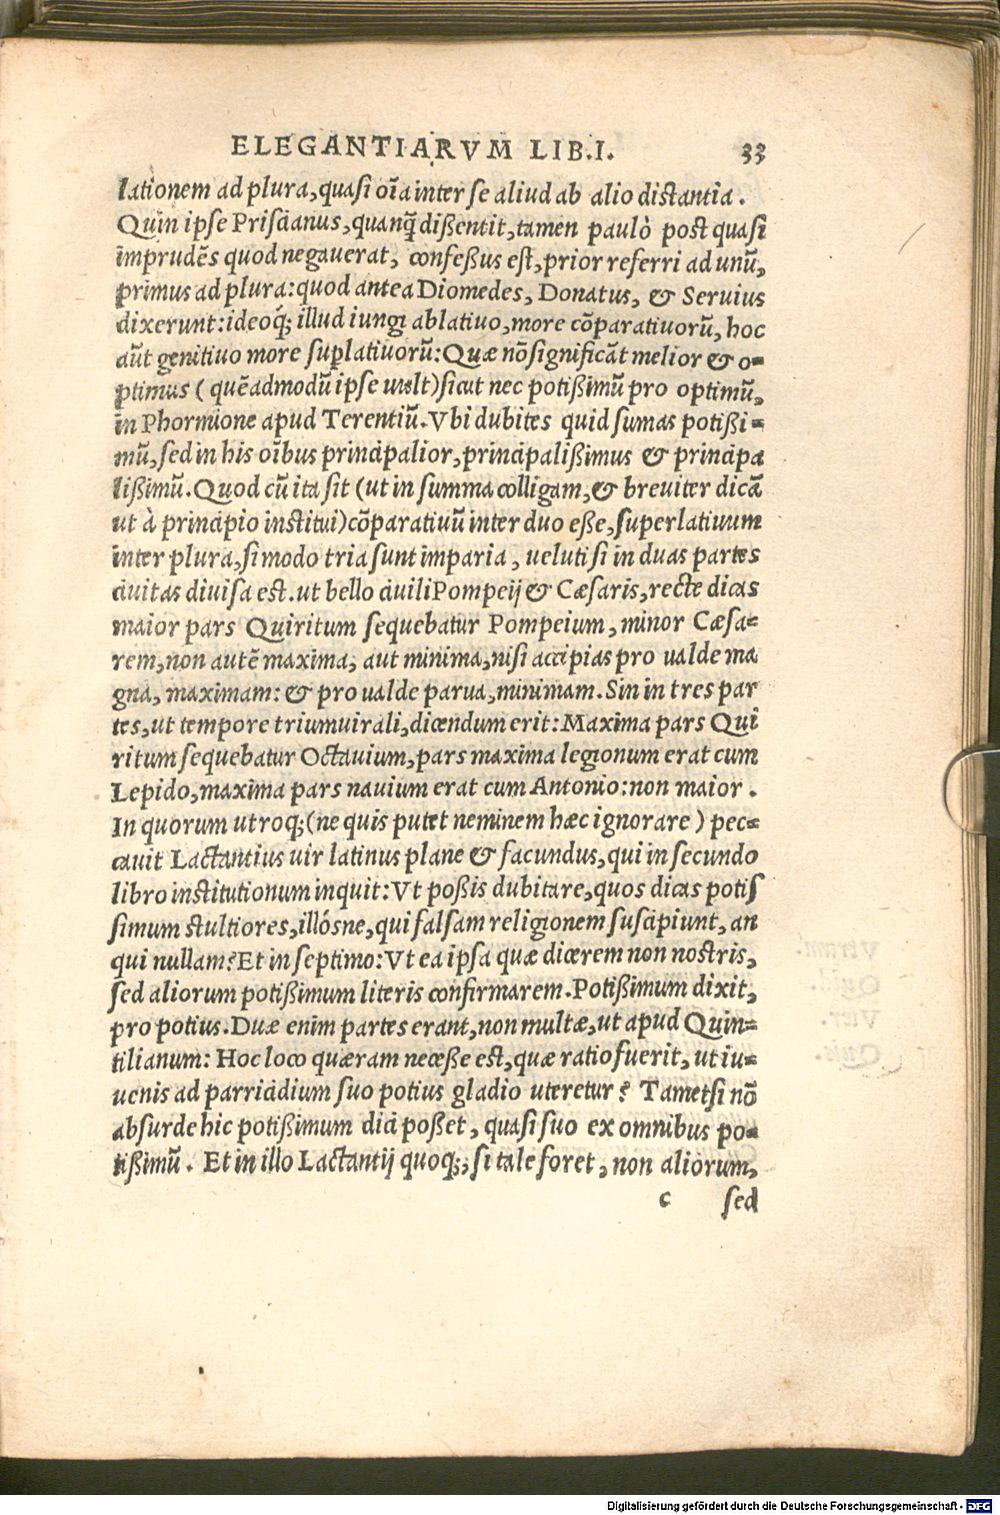 ELEGANTIARVM LIB.I. 33
lationem ad plura, quasi oīa inter se aliud ab alio distantia.
Quin ipse Priscianus, quanq̃ dißentit, tamen paulò post quasi
imprudẽs quod negauerat, confeßus est, prior referri ad unũ,
primus ad plura: quod antea Diomedes, Donatus, & Seruius
dixerunt: ideoq; illud iungi ablatiuo, more cõparatiuorũ, hoc
aũt genitiuo more suplatiuorũ: Quæ nõ significãt melior & o=
ptimus (quẽadmodũ ipse uult) sicut nec potißimũ pro optimũ,
in Phormione apud Terentiũ. Vbi dubites quid sumas potißi=
mũ, sed in his oībus principalior, principalißimus & principa
lißimũ. Quod cũ ita sit (ut in summa colligam, & breviter dicã
ut à principio institui) cõparatiuũ inter duo eße, superlatiuum
inter plura, si modo tria sunt imparia, ueluti si in duas partes
ciuitas diuisa est. ut bello ciuili Pompeij & Cæsaris, recte dicas
maior pars Quiritum sequebatur Pompeium, minor Cæsa=
rem, non autẽ maxima, aut minima, nisi accipias pro ualde ma
gna, maximam: & pro ualde parua, minimam. Sin in tres par
tes, ut tempore triumuirali, dicendum erit: Maxima pars Qui
ritum sequebatur Octauium, pars maxima legionum erat cum
Lepido, maxima pars nauium erat cum Antonio: non maior.
In quorum utroq; (ne quis putet neminem hæc ignorare) pec=
cauit Lactantius uir latinus plane & facundus, qui in secundo
libro institutionum inquit: Vt poßis dubitare, quos dicas potis
simum stultiores, illósne, qui falsam religionem suscipiunt, an
qui nullam? Et in septimo: Vt ea ipsa quæ dicerem non nostris,
sed aliorum potißimum literis confirmarem. Potißimum dixit,
pro potius. Duæ enim partes erant, non multæ, ut apud Quin=
tilianum: Hoc loco quæram neceße est, quæ ratio fuerit, ut iu=
uenis ad parricidium suo potius gladio uteretur? Tametsi nõ
absurde hic potißimum dici poßet, quasi suo ex omnibus po=
tißimũ. Et in illo Lactantij quoq;, si tale foret, non aliorum,
c sed
Digitalisierung gefördert durch die Deutsche Forschungsgemeinschaft - DFG